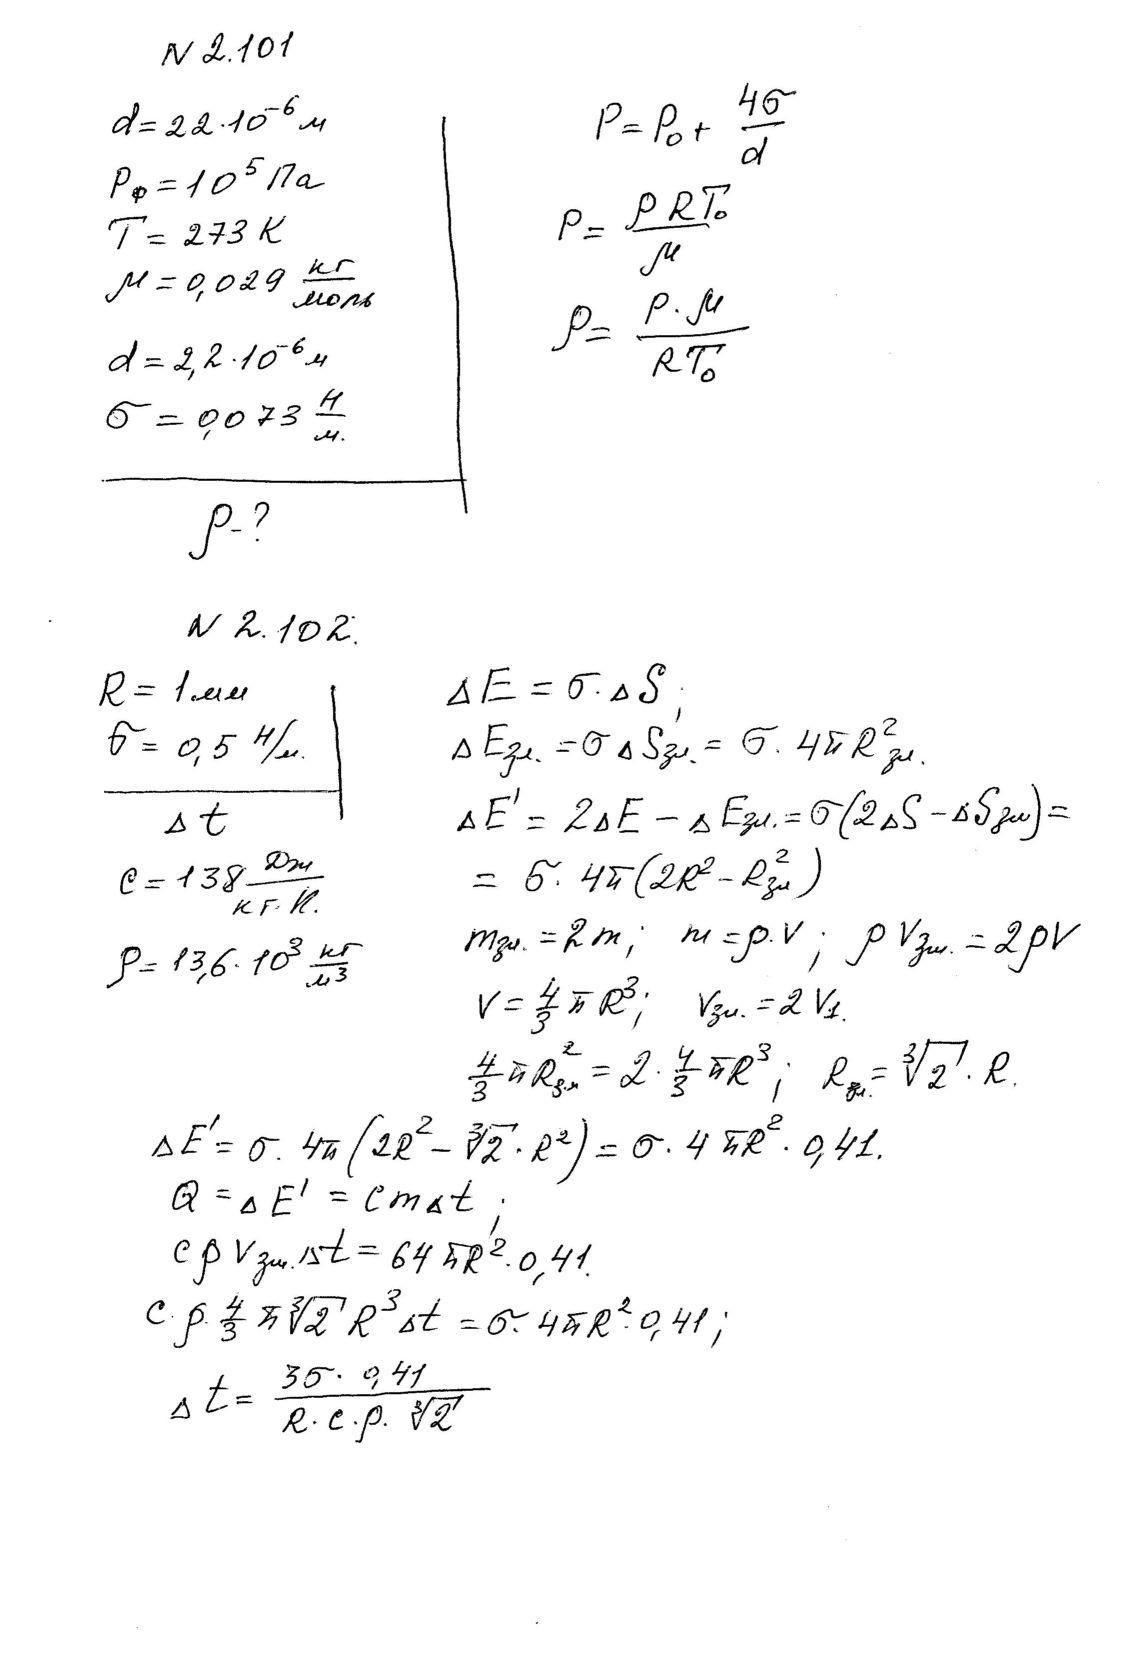 N 2.101
d = 22·10⁻⁶ м
Pф = 10⁵ Па
T = 273 К
μ = 0,029 кг/моль
d = 2,2·10⁻⁶ м
σ = 0,073 Н/м.
ρ - ?
P = P₀ + 4σ/d
P = ρRT₀/μ
ρ = P·μ/RT₀
N 2.102.
R = 1 мм
σ = 0,5 Н/м.
Δt
c = 138 Дж/кг·К.
ρ = 13,6·10³ кг/м³
ΔE = σ·ΔS;
ΔEзл. = σΔSзл. = σ·4πR²зл.
ΔE' = 2ΔE - ΔEзл. = σ(2ΔS - ΔSзл) =
= σ·4π(2R² - R²зл)
mзл. = 2m; m = ρ·V; ρVзл. = 2ρV
V = 4/3 πR³; Vзл. = 2V₁.
4/3 πR²зл = 2·4/3 πR³; Rзл. = ∛2·R.
ΔE' = σ·4π(2R² - ∛2·R²) = σ·4πR²·0,41.
Q = ΔE' = cmΔt;
cρVзл.Δt = 64πR²·0,41.
c·ρ·4/3 π∛2 R³Δt = σ·4πR²·0,41;
Δt = 3σ·0,41/R·c·ρ·∛2